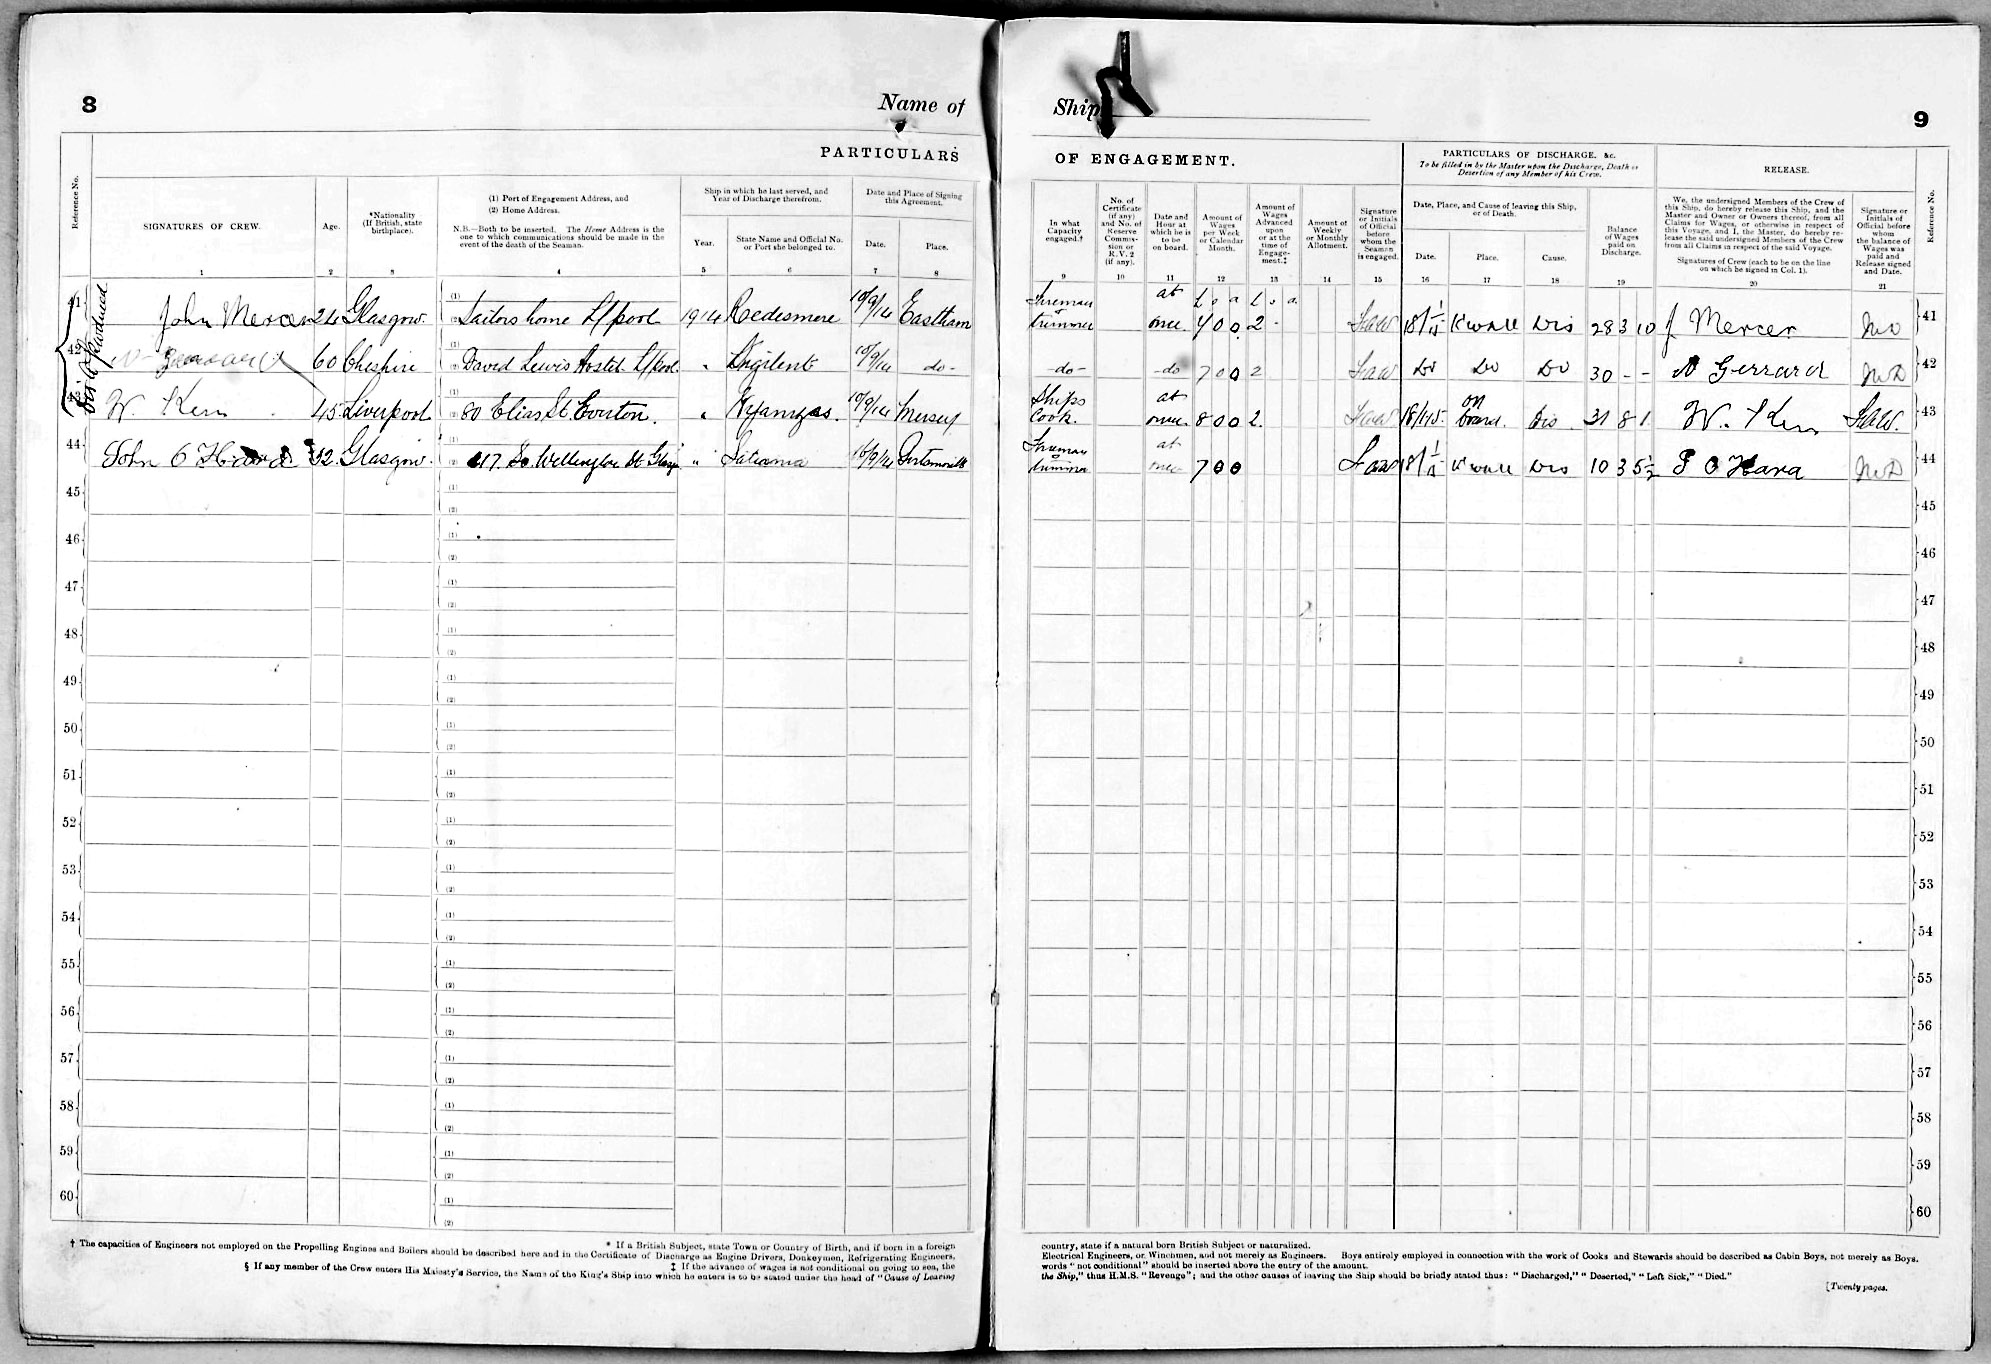 8
Name of
Ship
9
PARTICULARS
OF ENGAGEMENT.
PARTICULARS OF DISCHARGE, &c.
To be filled in by the Master upon the Discharge, Death or
Desertion of any Member of his Crew.
RELEASE.
Reference No.
SIGNATURES OF CREW.
Age.
*Nationality
(If British, state
birthplace).
(1) Port of Engagement Address, and
(2) Home Address.
N.B.—Both to be inserted. The Home Address is the
one to which communications should be made in the
event of the death of the Seaman.
Ship in which he last served, and
Year of Discharge therefrom.
Year.
State Name and Official No.
or Port she belonged to.
Date and Place of Signing
this Agreement.
Date.
Place.
In what
Capacity
engaged.†
No. of
Certificate
(if any)
and No. of
Reserve
Commis-
sion or
R.V. 2
(if any).
Date and
Hour at
which he is
to be
on board.
Amount of
Wages
per Week
or Calendar
Month.
Amount of
Wages
Advanced
upon
or at the
time of
Engage-
ment.‡
Amount of
Weekly
or Monthly
Allotment.
Signature
or Initials
of Official
before
whom the
Seaman
is engaged.
Date, Place, and Cause of leaving this Ship,
or of Death.
Date.
Place.
Cause.
Balance
of Wages
paid on
Discharge.
We, the undersigned Members of the Crew of
this Ship, do hereby release this Ship, and the
Master and Owner or Owners thereof, from all
Claims for Wages, or otherwise in respect of
this Voyage, and I, the Master, do hereby re-
lease the said undersigned Members of the Crew
from all Claims in respect of the said Voyage.
Signatures of Crew (each to be on the line
on which he signed in Col. 1).
Signature or
Initials of
Official before
whom
the balance of
Wages was
paid and
Release signed
and Date.
Reference No.
1 2 3 4 5 6 7 8 9 10 11 12 13 14 15 16 17 18 19 20 21
41 John Mercer 24 Glasgow. (1) (2) Sailors home L/pool 1914 Redesmere 10/9/14 Eastham Fireman trimmer at once 7 0 0 2 - 18/1/15 K'wall Dis 28 3 10 J Mercer 41
42 60 Cheshire (1) (2) David Lewis Hostel L/pool. " Vigilent 10/9/14 do- -do- -do 7 0 0 2 Do Do Do 30 - - Gerrard 42
43 W. Kerr 45 Liverpool (1) (2) 80 Elias St. Everton. " 10/9/14 Mersey Ships Cook. at once 8 0 0 2. 18/1/15. on board. Dis 31 8 1 W. Kerr 43
44 John O Hara 32 Glasgow. (1) (2) 417 So Wellington St Glasgow " 16/9/14 Fireman trimmer at once 7 0 0 18/1/15 K'wall Dis 10 3 5½ O Hara 44
45 (1) (2) 45
46 (1) (2) 46
47 (1) (2) 47
48 (1) (2) 48
49 (1) (2) 49
50 (1) (2) 50
51 (1) (2) 51
52 (1) (2) 52
53 (1) (2) 53
54 (1) (2) 54
55 (1) (2) 55
56 (1) (2) 56
57 (1) (2) 57
58 (1) (2) 58
59 (1) (2) 59
60 (1) (2) 60
* If a British Subject, state Town or Country of Birth, and if born in a foreign
country, state if a natural born British Subject or naturalized.
† The capacities of Engineers not employed on the Propelling Engines and Boilers should be described here and in the Certificate of Discharge as Engine Drivers, Donkeymen, Refrigerating Engineers,
Electrical Engineers, or Winchmen, and not merely as Engineers. Boys entirely employed in connection with the work of Cooks and Stewards should be described as Cabin Boys, not merely as Boys.
‡ If the advance of wages is not conditional on going to sea, the
words "not conditional" should be inserted above the entry of the amount.
§ If any member of the Crew enters His Majesty's Service, the Name of the King's Ship into which he enters is to be stated under the head of "Cause of Leaving
the Ship," thus H.M.S. "Revenge"; and the other causes of leaving the Ship should be briefly stated thus: "Discharged," "Deserted," "Left Sick," "Died."
[Twenty pages.